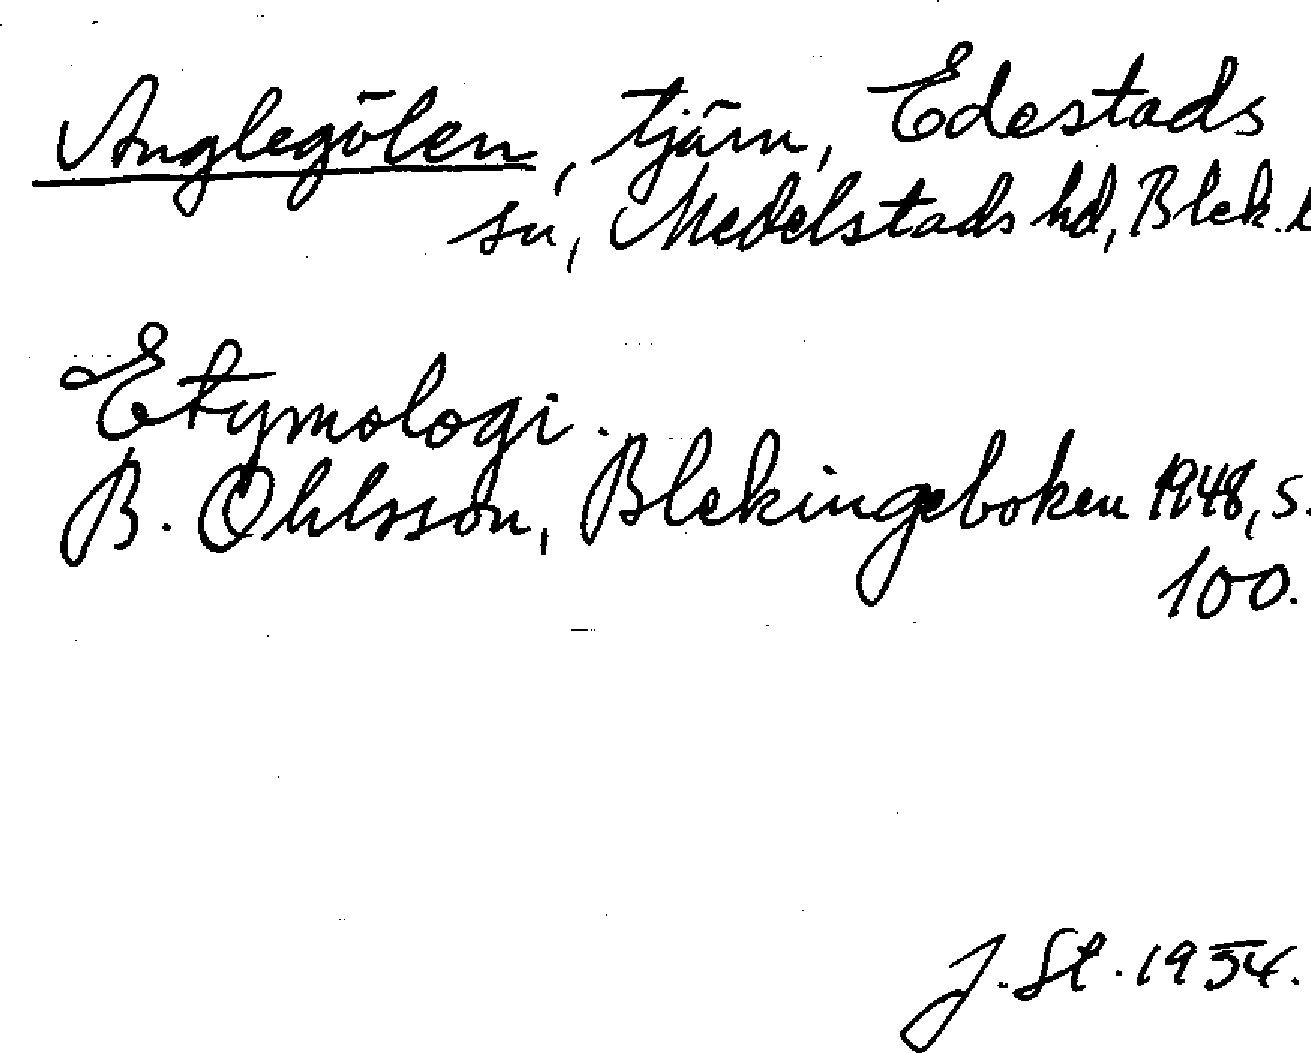 Anglegölen, tjärn, Edestads
sn, Medelstads hd, Blek. l
Etymologi.
B. Ohlsson, Blekingeboken 1948, s.
100.
J. Sl. 1954.